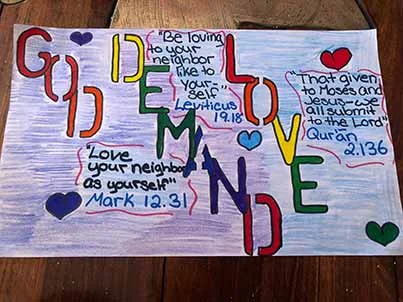 GOD
DEMAND
LOVE
"Be loving
to your
neighbor
like to
your-
self"
Leviticus
19.18
"That given
to Moses and
Jesus-we
all submit
to the Lord"
Qur'an
2.136
"Love
your neighbor
as yourself"
Mark 12.31